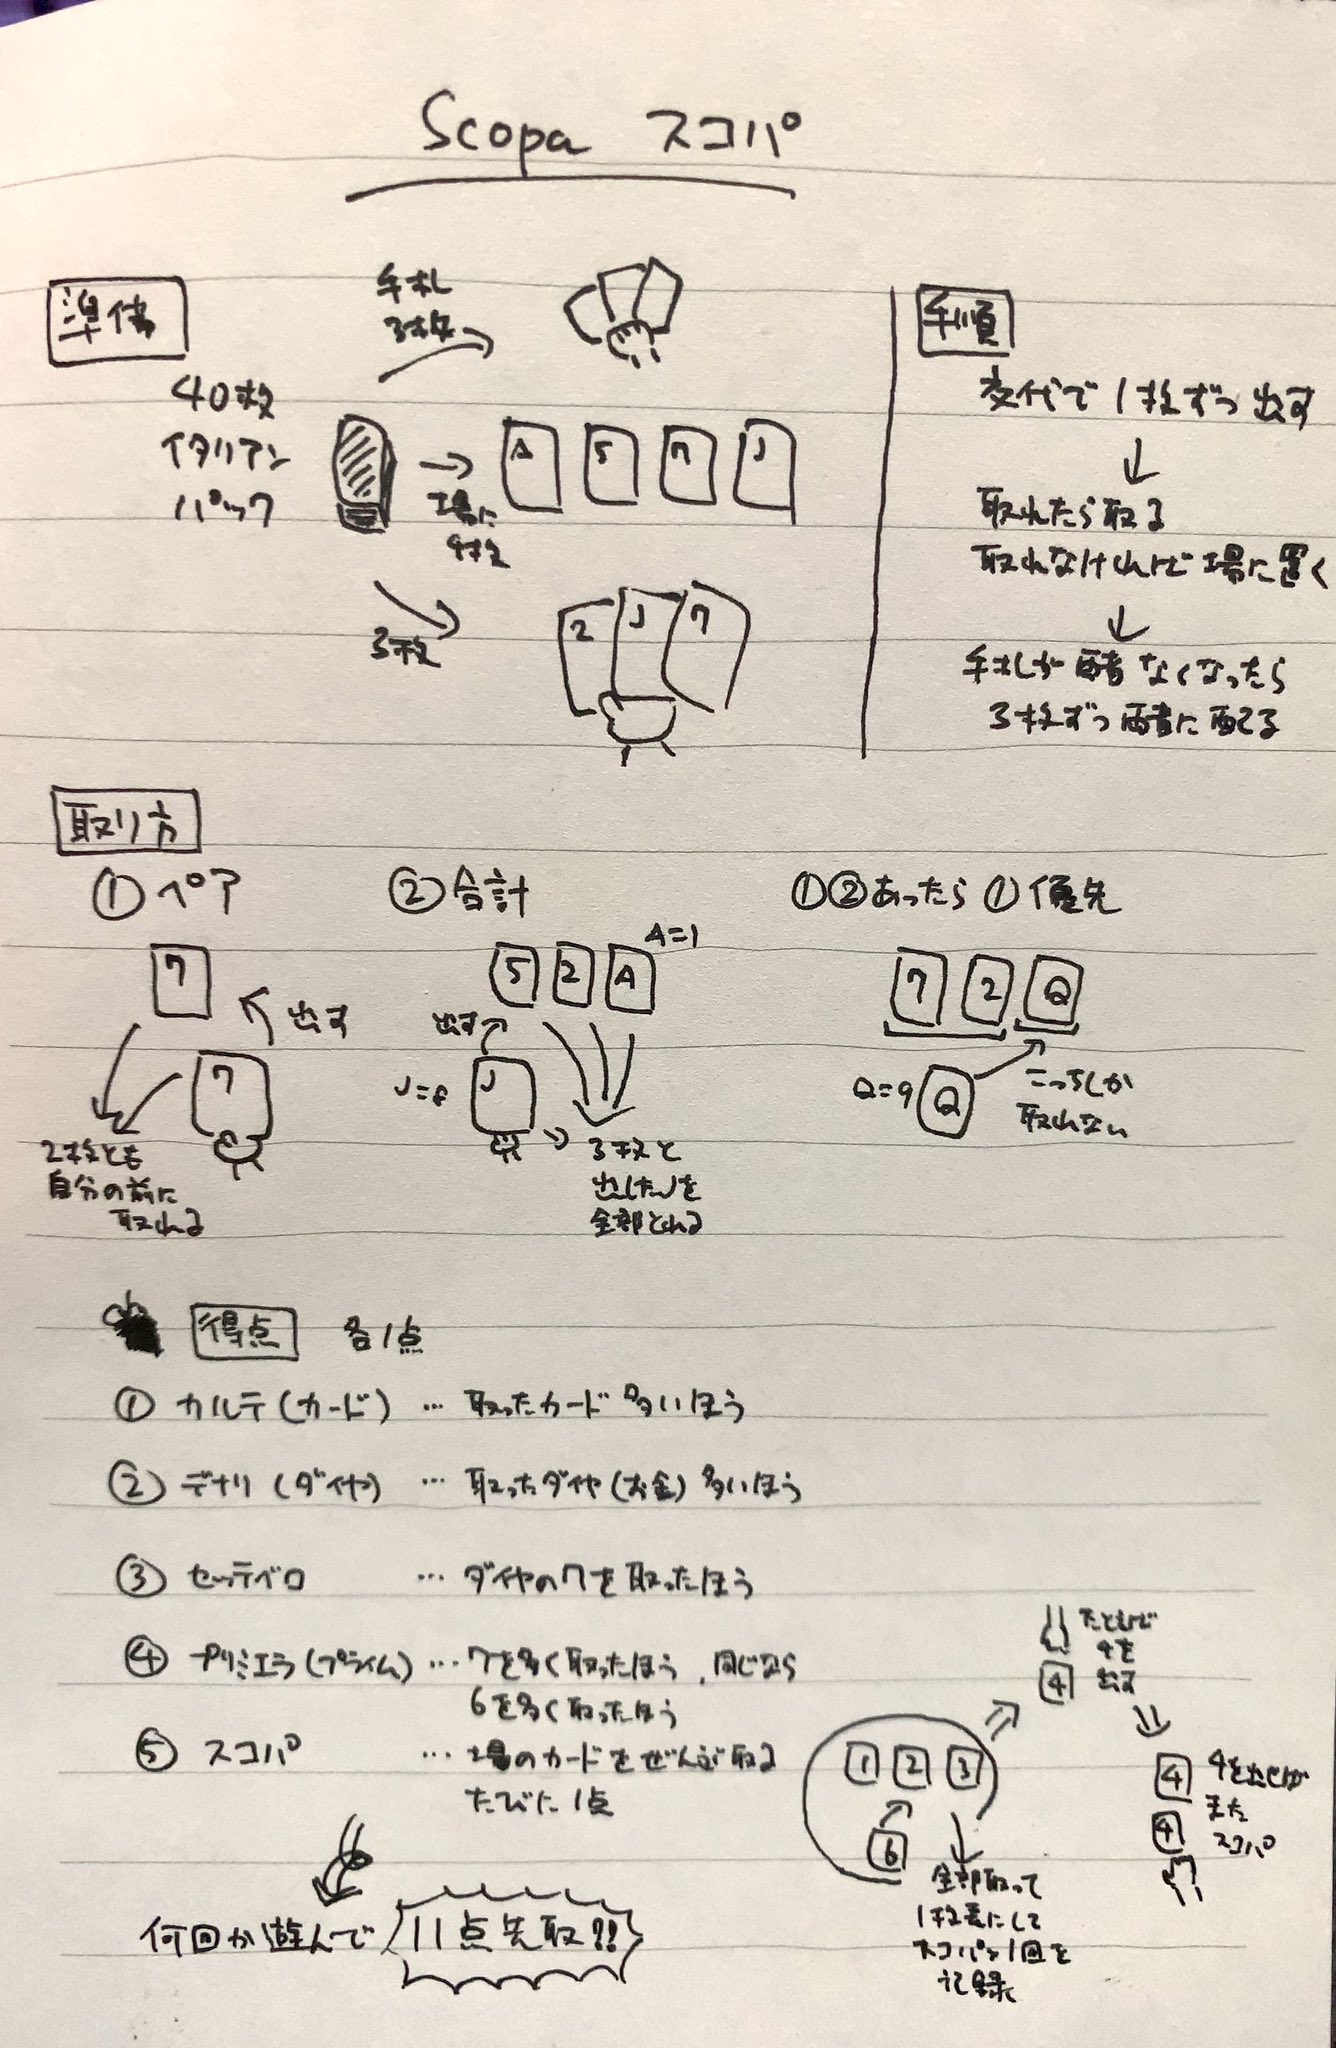 Scopa スコパ
準備
40枚
イタリアン
パック
手札
3枚
場に
4枚
A 5 7 J
3枚
2 J 7
手順
交代で1枚ずつ出す
取れたら取る
取れなければ場に置く
手札が両者なくなったら
3枚ずつ両者に配る
取り方
①ペア
7
出す
7
2枚とも
自分の前に
取れる
②合計
A=1
5 2 A
出す
J=8
J
3枚と
出したJを
全部とれる
①②あったら①優先
7 2 Q
Q=9 Q
こっちしか
取れない
得点 各1点
①カルテ(カード) … 取ったカード多いほう
②デナリ(ダイヤ) … 取ったダイヤ(お金)多いほう
③セッテベロ … ダイヤの7を取ったほう
④プリミエラ(プライム) … 7を多く取ったほう、同じなら
6を多く取ったほう
⑤スコパ … 場のカードをぜんぶ取る
たびに1点
何回か遊んで 11点先取!!
1 2 3
6
全部取って
1枚表にして
スコパ1回を
記録
たとえば
4を
出す
4
4
4
4を出せば
また
スコパ